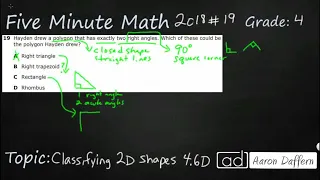 Five Minute Math 2018#19 Grade: 4
19 Hayden drew a polygon that has exactly two right angles. Which of these could be
the polygon Hayden drew?
closed shape
straight lines
90°
square corner
A Right triangle
B Right trapezoid ?
C Rectangle
D Rhombus
?
1 right angle
2 acute angles
Topic: Classifying 2D shapes 4.6D
ad Aaron Daffern